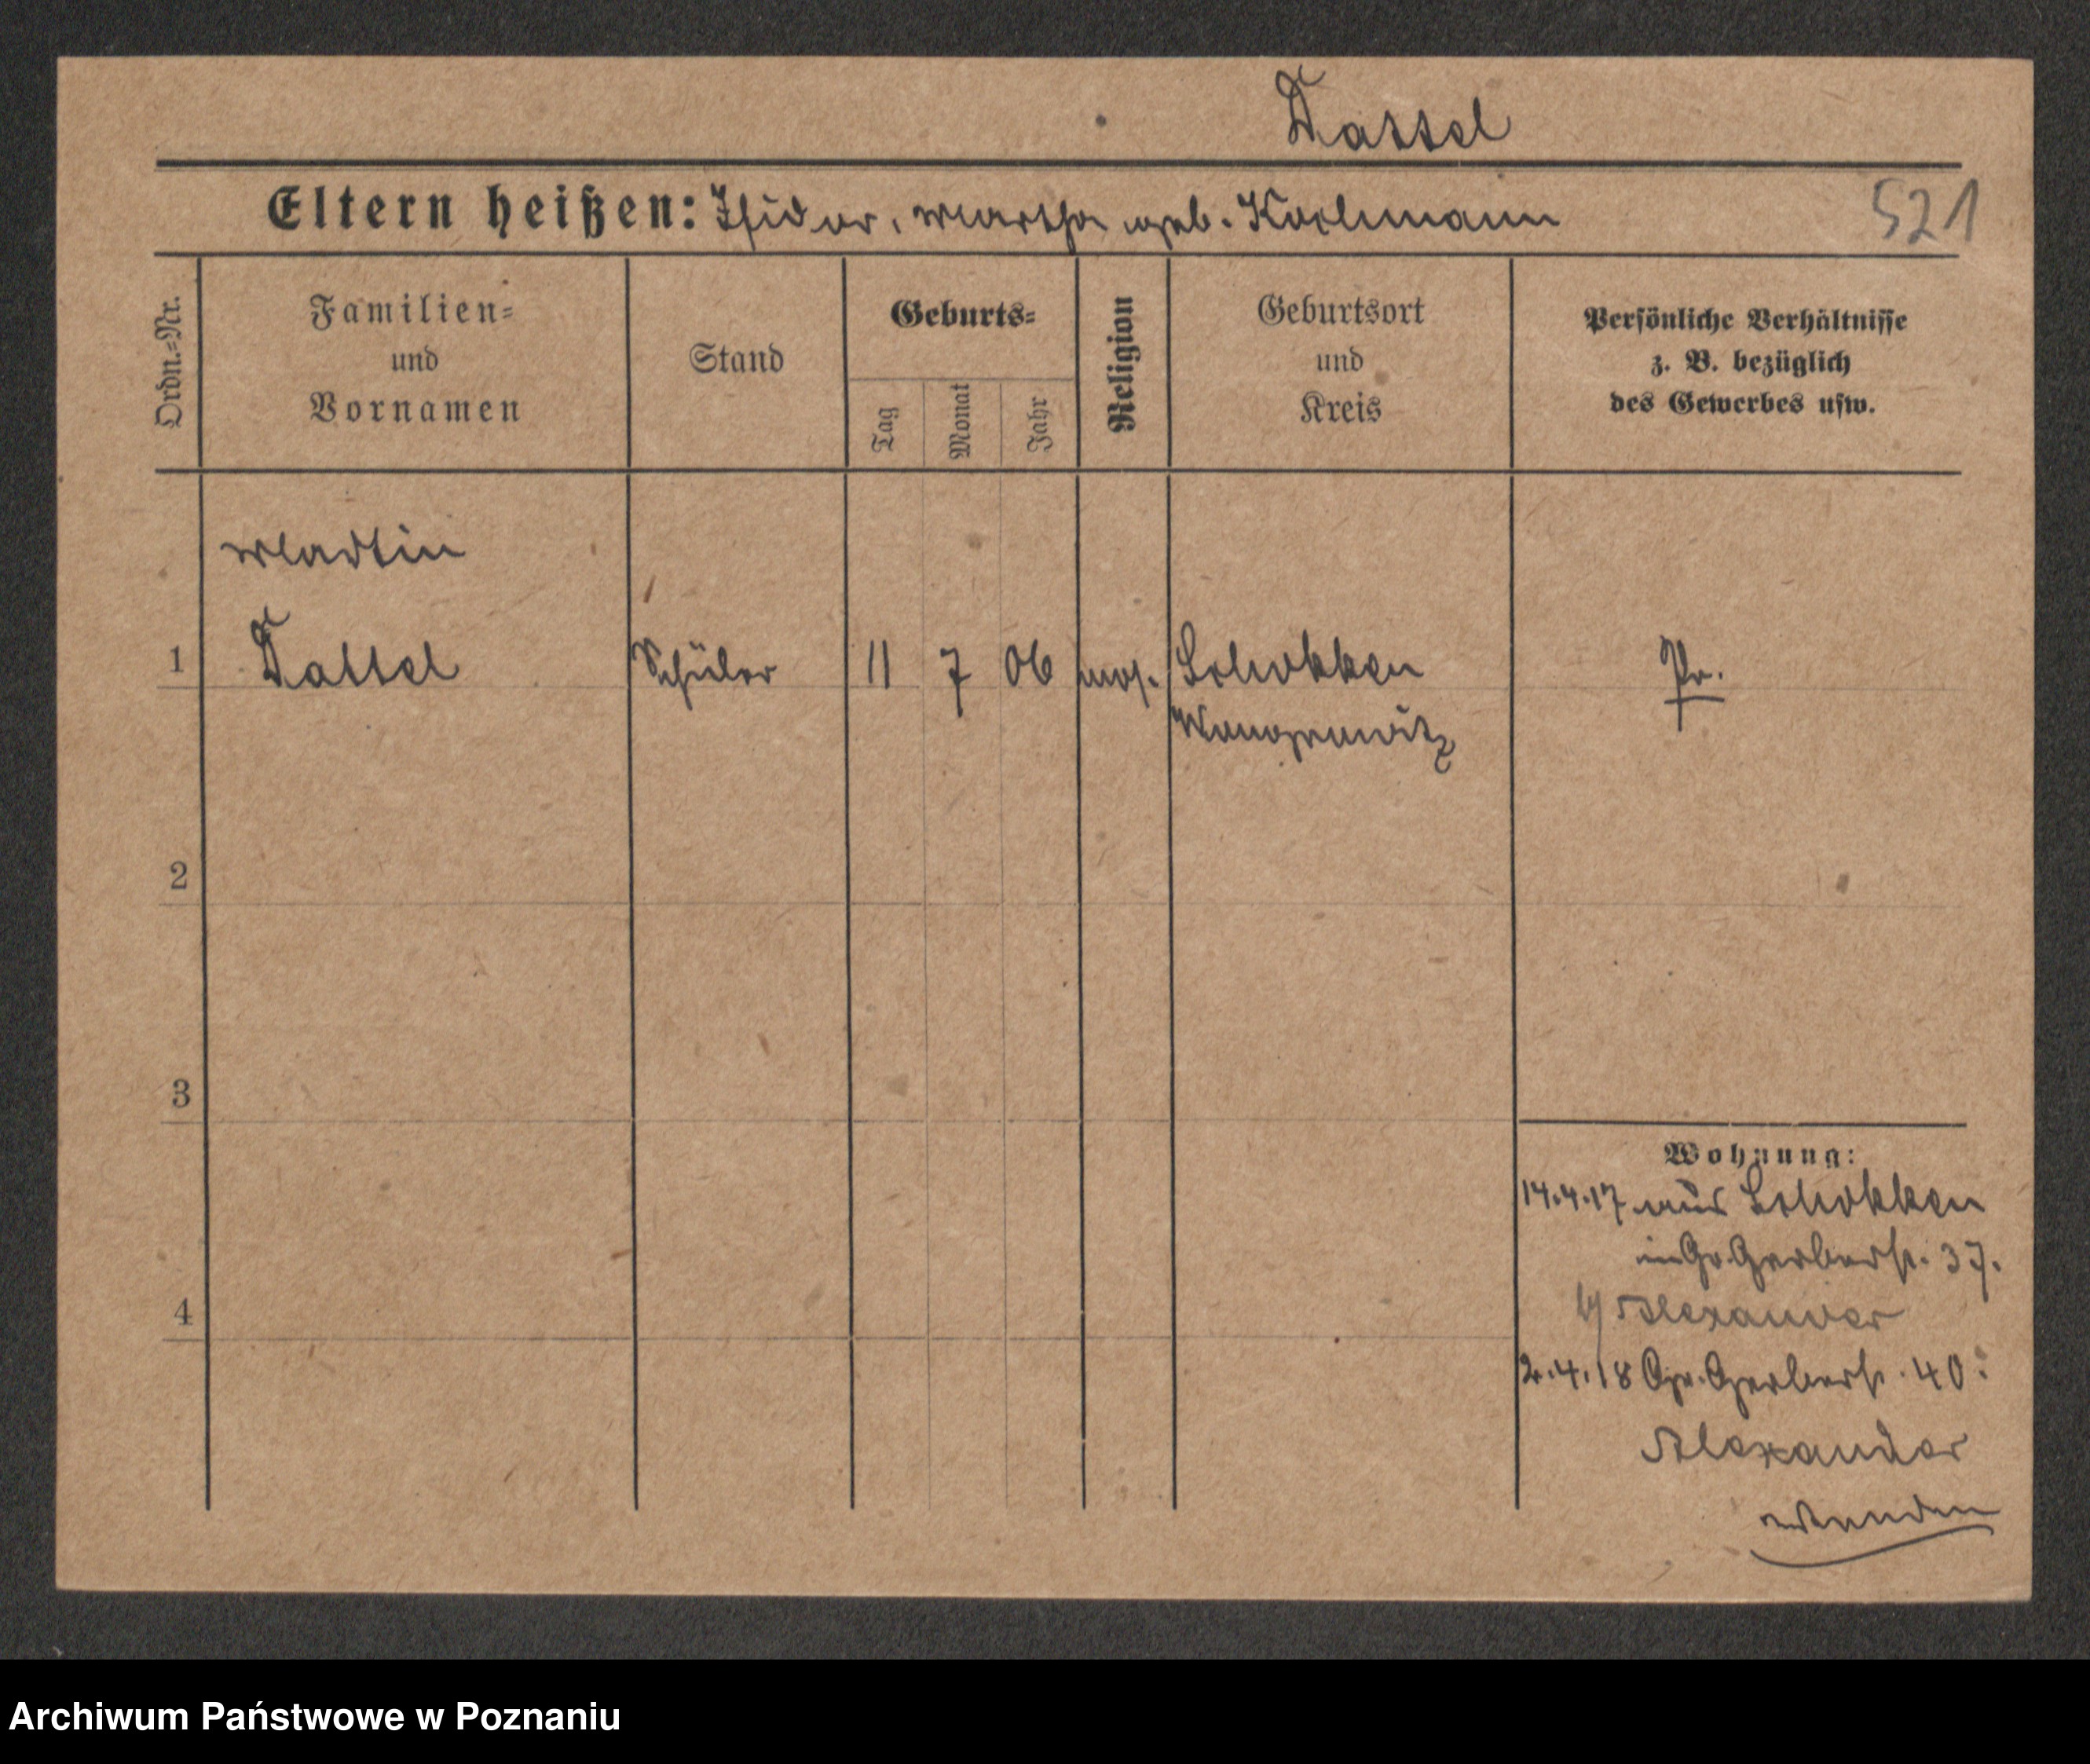 Tassel
Eltern heißen: Isidor, Martha geb. Kochmann
521
Ordn.-Nr.
Familien-
und
Vornamen
Stand
Geburts-
Tag
Monat
Jahr
Religion
Geburtsort
und
Kreis
Persönliche Verhältnisse
z. B. bezüglich
des Gewerbes usw.
Martin
1 Tassel Schüler 11 7 06 mos. Schokken Pr.
Wongrowitz
2
3
4
Wohnung:
14.4.17 aus Schokken
in Gr. Gerberst. 37.
Alexander
2.4.18 Gr. Gerberst. 40.
Alexander
wenden
Archiwum Państwowe w Poznaniu